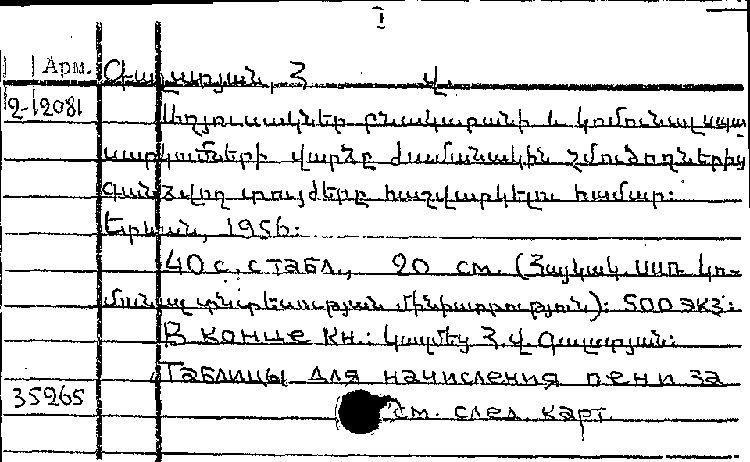 I
Арм. Գալստյան, Հ. Վ.
2-12081
Աղյուսակներ բնակարանի և կոմունալ սպա
սարկումների վարձը ժամանակին չմուծողներից
գանձվող տույժերը հաշվարկելու համար:
Երևան, 1956:
40 с. с табл., 20 см. (Հայկակ. ՍՍՌ կո-
մունալ տնտեսության մինիստրություն): 500 экз:
В конце кн.: Կազմեց Հ. Վ. Գալստյան:
Таблицы для начисления пени за
35265 см. след. карт.